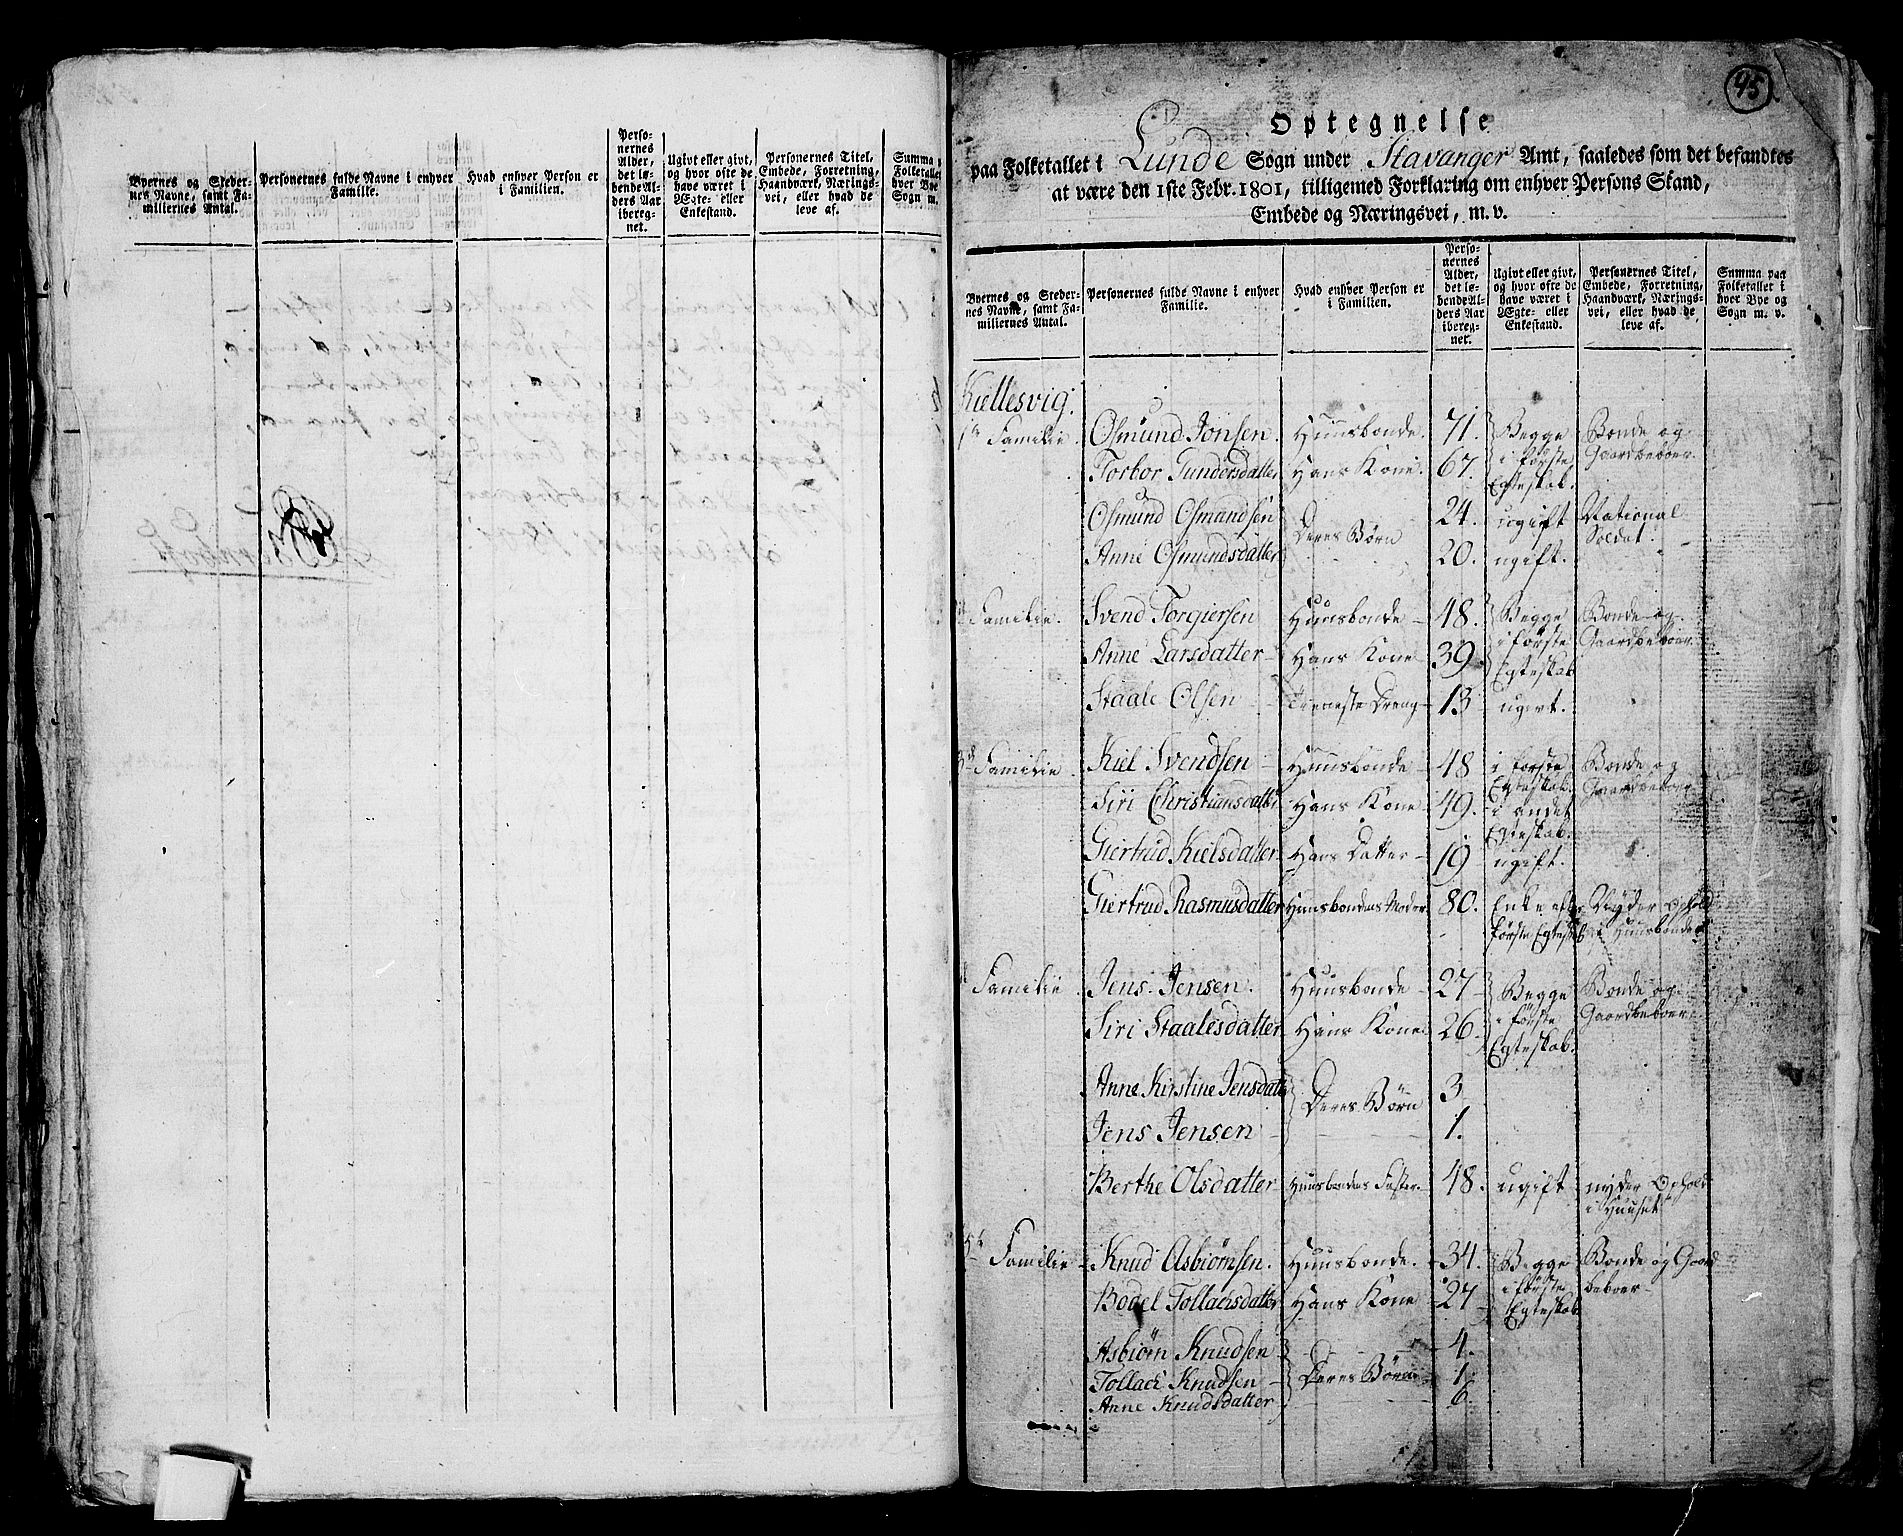 Byernes og Steder- nes Navne, samt Fa- miliernes Antal.
Personernes fulde Navne i enhver Familie.
Hvad enhver Person er i Familien.
Perso- nernes Alder, det lø- bende Al- ders Aar ibereg- net.
Ugivt eller givt, og hvor ofte de have været i Ægte- eller Enkestand.
Personernes Titel, Embede, Forretning, Haandværk, Nærings- vei, eller hvad de leve af.
Summa Folketallet hver Bye Sogn m.
95
Optegnelse
paa Folketallet i Lunde Sogn under Stavanger Amt, saaledes som det befandtes
at være den 1ste Febr. 1801, tilligemed Forklaring om enhver Persons Stand,
Embede og Næringsvei, m. v.
Byernes og Steder- nes Navne, samt Fa- miliernes Antal.
Personernes fulde Navne i enhver Familie.
Hvad enhver Person er i Familien.
Perso- nernes Alder, det lø- bende Al- ders Aar ibereg- net.
Ugivt eller givt, og hvor ofte de have været i Ægte- eller Enkestand.
Personernes Titel, Embede, Forretning, Haandværk, Nærings- vei, eller hvad de leve af.
Summa paa Folketallet i hver Bye og Sogn m. v.
Kiellesvig.
1te Familie. Osmund Jonsen. Huusbonde. 71. Begge i første Egteskab. Bonde og Gaardbeboer.
Torbor Gundersdatter Hans Kone 67.
Osmund Osmundsen Deres Børn 24. ugift National Soldat.
Anne Osmundsdatter 20. ugift.
Familie. Svend Torgiersen Huusbonde 48. Begge i første Egteskab Bonde og Gaardbeboer
Anne Larsdatter Hans Kone 39
Staale Olsen Tieneste Dreng 13 ugivt.
3d Familie. Kiel Svendsen Huusbonde 48 i første Egteskab. Bonde og Gaardbeboer
Siri Christiansdatter Hans Kone 49. i andet Egteskab.
Giertrud Kielsdatter Hans Datter 19 ugift.
Giertrud Rasmusdatter Huusbondens Moder 80. Enke efter første Egteskab Nyder Ophold i Huusbonde
Familie Jens Jensen. Huusbonde 27 Begge i første Egteskab. Bonde og Gaardbeboer
Siri Staalesdatter Hans Kone 26
Anne Kirstine Jensdatter Deres Børn 3
Jens Jensen 1.
Berthe Olsdatter Huusbondens Faster 48. ugift nyder Ophold i Huuset
5te Familie Knud Asbiørnsen. Huusbonde. 34. Begge i første Egteskab Bonde og Gaard beboer
Bodel Tollachsdatter Hans Kone 27
Asbiørn Knudsen Deres Børn 4.
Tollach Knudsen 1
Anne Knudsdatter 6.